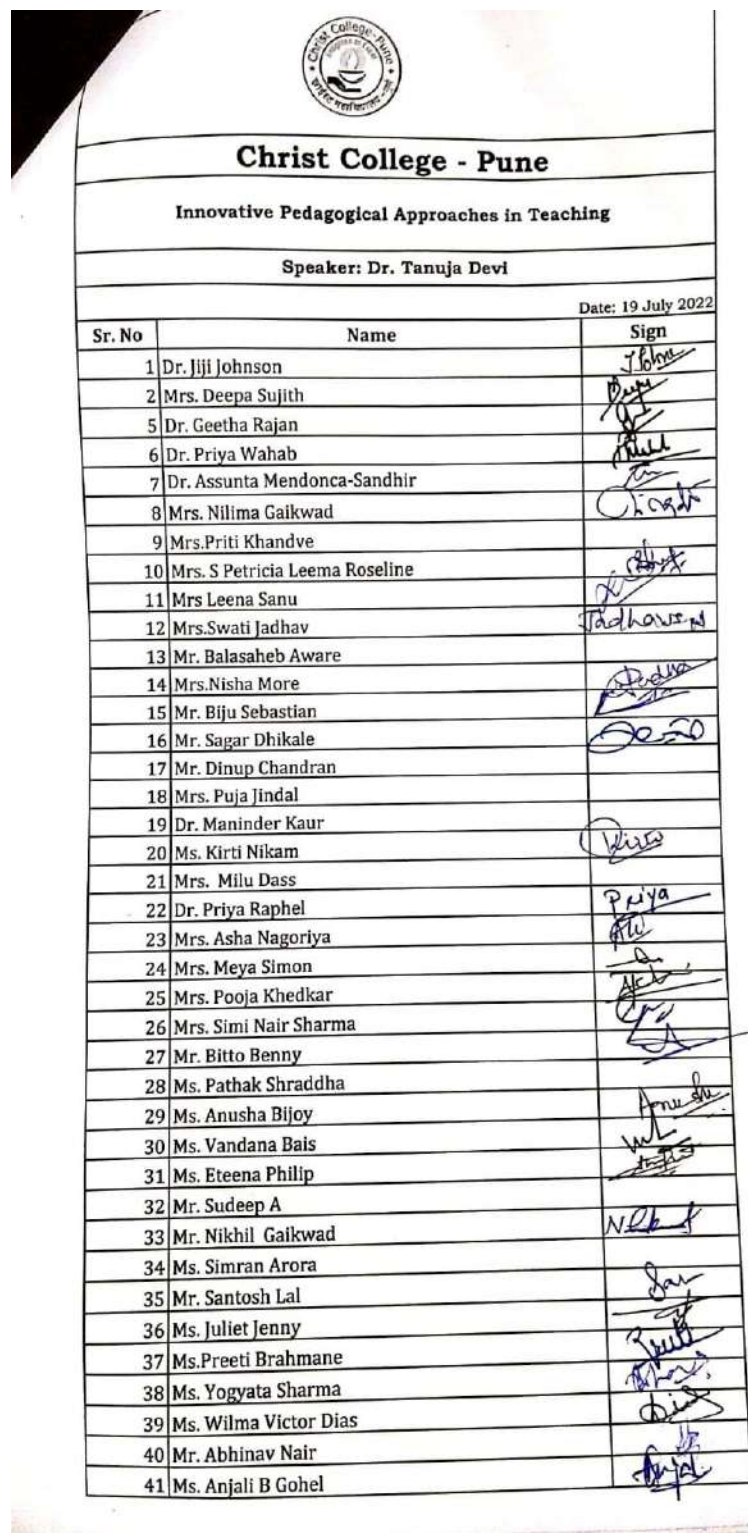 Christ College - Pune
Christ College - Pune
Innovative Pedagogical Approaches in Teaching
Speaker: Dr. Tanuja Devi
Date: 19 July 2022
Sr. No Name Sign
1 Dr. Jiji Johnson
2 Mrs. Deepa Sujith
5 Dr. Geetha Rajan
6 Dr. Priya Wahab
7 Dr. Assunta Mendonca-Sandhir
8 Mrs. Nilima Gaikwad
9 Mrs.Priti Khandve
10 Mrs. S Petricia Leema Roseline
11 Mrs Leena Sanu
12 Mrs.Swati Jadhav
13 Mr. Balasaheb Aware
14 Mrs.Nisha More
15 Mr. Biju Sebastian
16 Mr. Sagar Dhikale
17 Mr. Dinup Chandran
18 Mrs. Puja Jindal
19 Dr. Maninder Kaur
20 Ms. Kirti Nikam
21 Mrs. Milu Dass
22 Dr. Priya Raphel Priya
23 Mrs. Asha Nagoriya
24 Mrs. Meya Simon
25 Mrs. Pooja Khedkar
26 Mrs. Simi Nair Sharma
27 Mr. Bitto Benny
28 Ms. Pathak Shraddha
29 Ms. Anusha Bijoy
30 Ms. Vandana Bais
31 Ms. Eteena Philip
32 Mr. Sudeep A
33 Mr. Nikhil Gaikwad
34 Ms. Simran Arora
35 Mr. Santosh Lal
36 Ms. Juliet Jenny
37 Ms.Preeti Brahmane
38 Ms. Yogyata Sharma
39 Ms. Wilma Victor Dias
40 Mr. Abhinav Nair
41 Ms. Anjali B Gohel